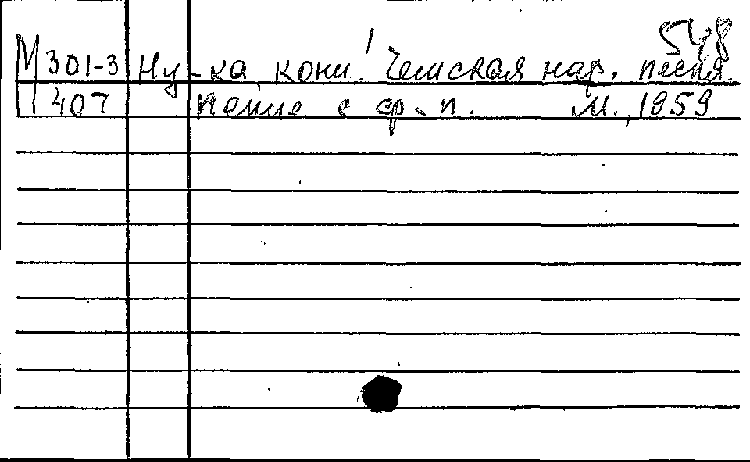 548
М 301-3 Ну-ка кони! Чешская нар. песня.
407 Пение с ф.-п. М., 1959